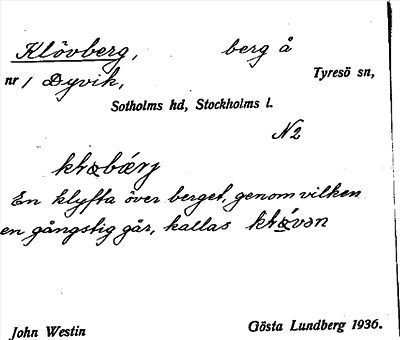 Klövberg, berg å
nr 1 Dyvik, Tyresö sn,
Sotholms hd, Stockholms l.
N2
En klyfta över berget, genom vilken
en gångstig går, kallas
John Westin Gösta Lundberg 1936.